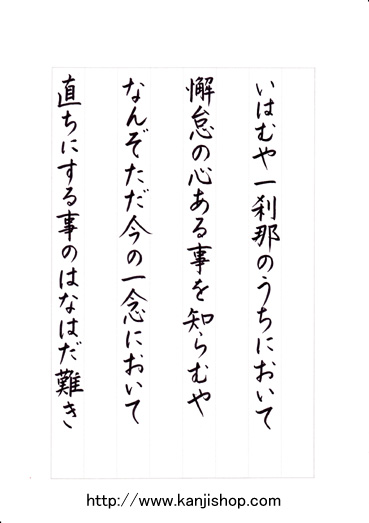 いはむや一刹那のうちにおいて
懈怠の心ある事を知らむや
なんぞただ今の一念において
直ちにする事のはなはだ難き
http://www.kanjishop.com